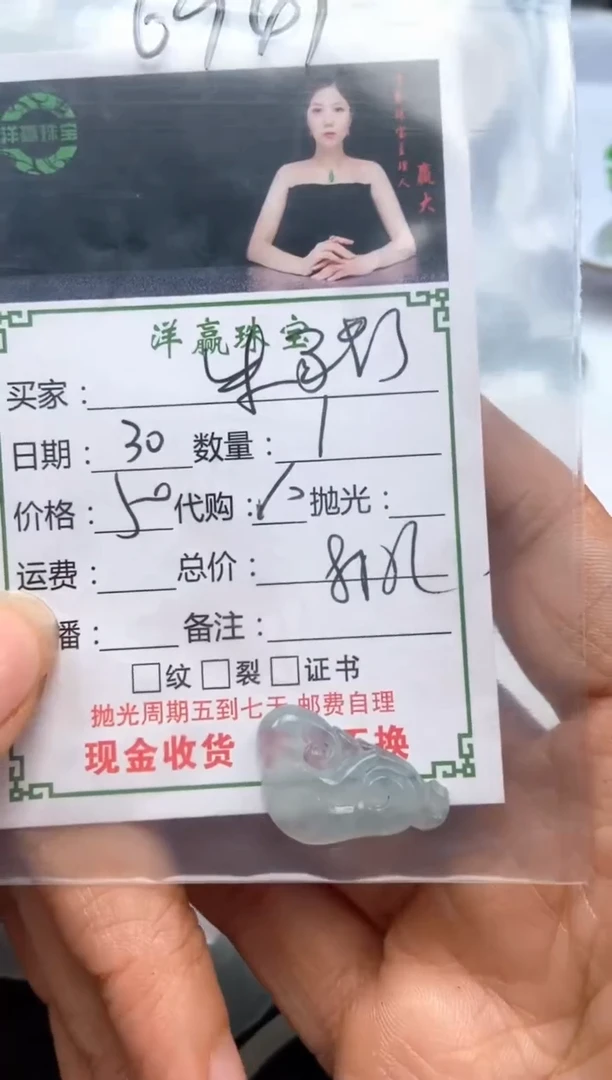 6941
洋赢珠宝
洋赢珠宝主理人
赢大
洋赢珠宝
买家：
日期：30 数量：1
价格：50 代购： 抛光：
运费： 总价：
播： 备注：
□纹 □裂 □证书
抛光周期五到七天 邮费自理
现金收货 不换